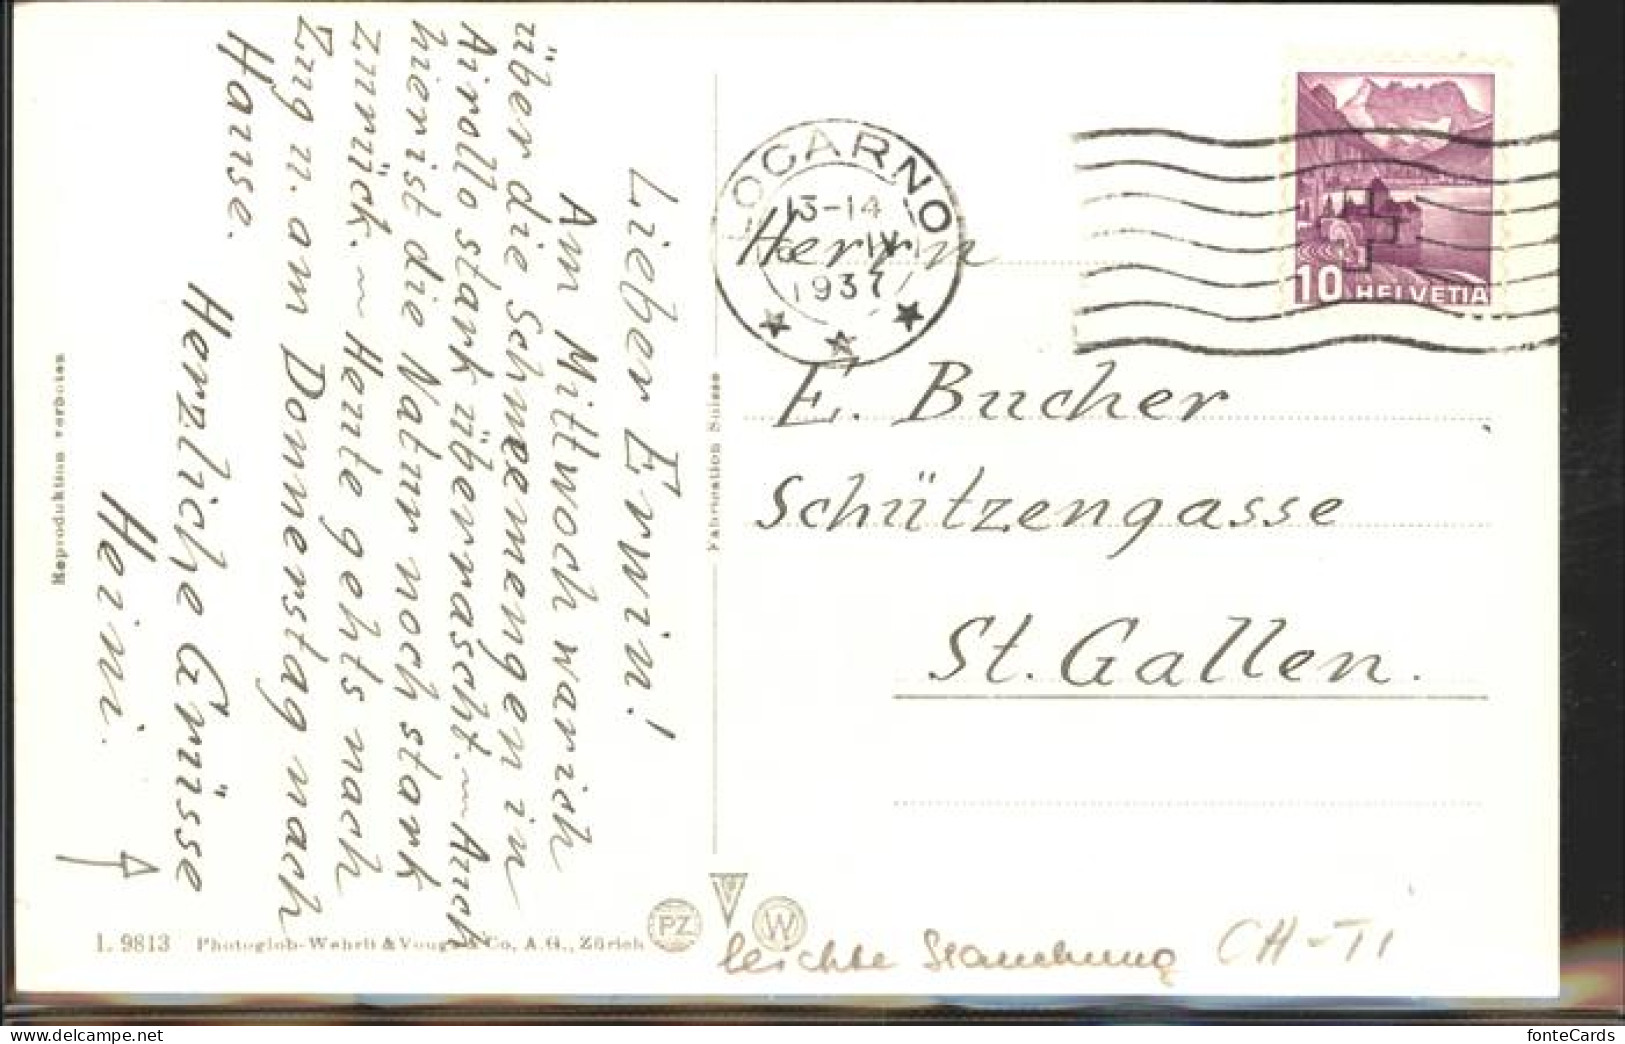 Lieber Erwin!
Am Mittwoch war ich
über die Schneemengen in
Airollo stark überrascht. — Auch
hier ist die Natur noch stark
zurück. — Heute gehts nach
Zug u. am Donnerstag nach
Hause.
Herzliche Grüsse
Heini.
Reproduktion verboten
Fabrication Suisse
LOCARNO
13-14
IV
1937
10 HELVETIA
Herrn
E. Bucher
Schützengasse
St. Gallen.
L. 9813 Photoglob-Wehrli & Vouga & Co. A.G., Zürich
PZ
W
leichte Stauchung CH-TI
fonteCards